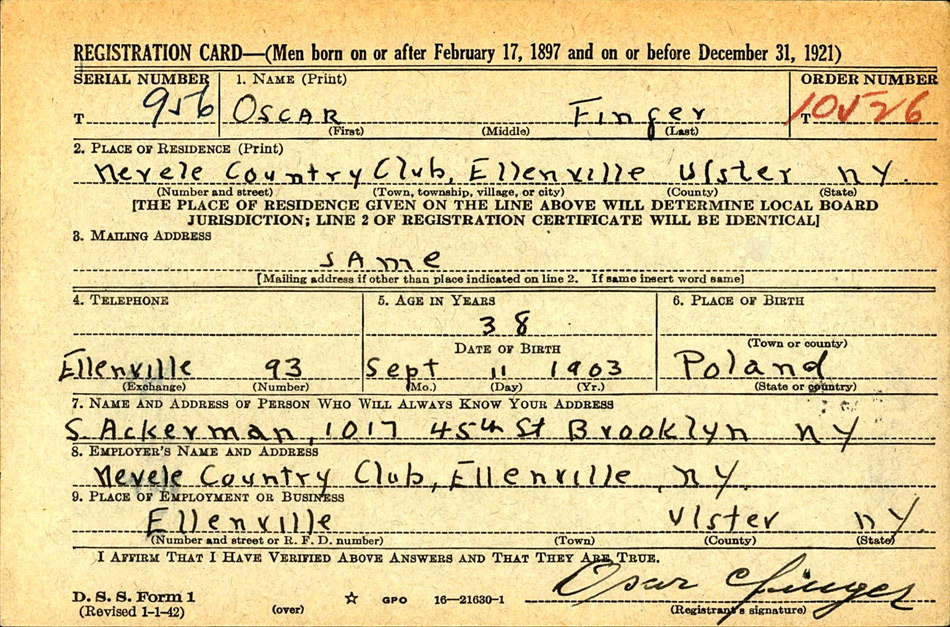 REGISTRATION CARD—(Men born on or after February 17, 1897 and on or before December 31, 1921)
SERIAL NUMBER 1. NAME (Print) ORDER NUMBER
T 956 OSCAR Finger T 10526
(First) (Middle) (Last)
2. PLACE OF RESIDENCE (Print)
Nevele Country Club, Ellenville Ulster NY.
(Number and street) (Town, township, village, or city) (County) (State)
[THE PLACE OF RESIDENCE GIVEN ON THE LINE ABOVE WILL DETERMINE LOCAL BOARD
JURISDICTION; LINE 2 OF REGISTRATION CERTIFICATE WILL BE IDENTICAL]
3. MAILING ADDRESS
SAme
[Mailing address if other than place indicated on line 2. If same insert word same]
4. TELEPHONE 5. AGE IN YEARS 6. PLACE OF BIRTH
38
(Town or county)
DATE OF BIRTH
Ellenville 93 Sept 11 1903 Poland
(Exchange) (Number) (Mo.) (Day) (Yr.) (State or country)
7. NAME AND ADDRESS OF PERSON WHO WILL ALWAYS KNOW YOUR ADDRESS
S Ackerman, 1017 45th St Brooklyn NY
8. EMPLOYER'S NAME AND ADDRESS
Nevele Country Club, Ellenville, NY.
9. PLACE OF EMPLOYMENT OR BUSINESS
Ellenville Ulster NY.
(Number and street or R. F. D. number) (Town) (County) (State)
I AFFIRM THAT I HAVE VERIFIED ABOVE ANSWERS AND THAT THEY ARE TRUE.
Osar Finger
D. S. S. Form 1
(Revised 1-1-42) (over) ☆ GPO 16—21630-1 (Registrant's signature)